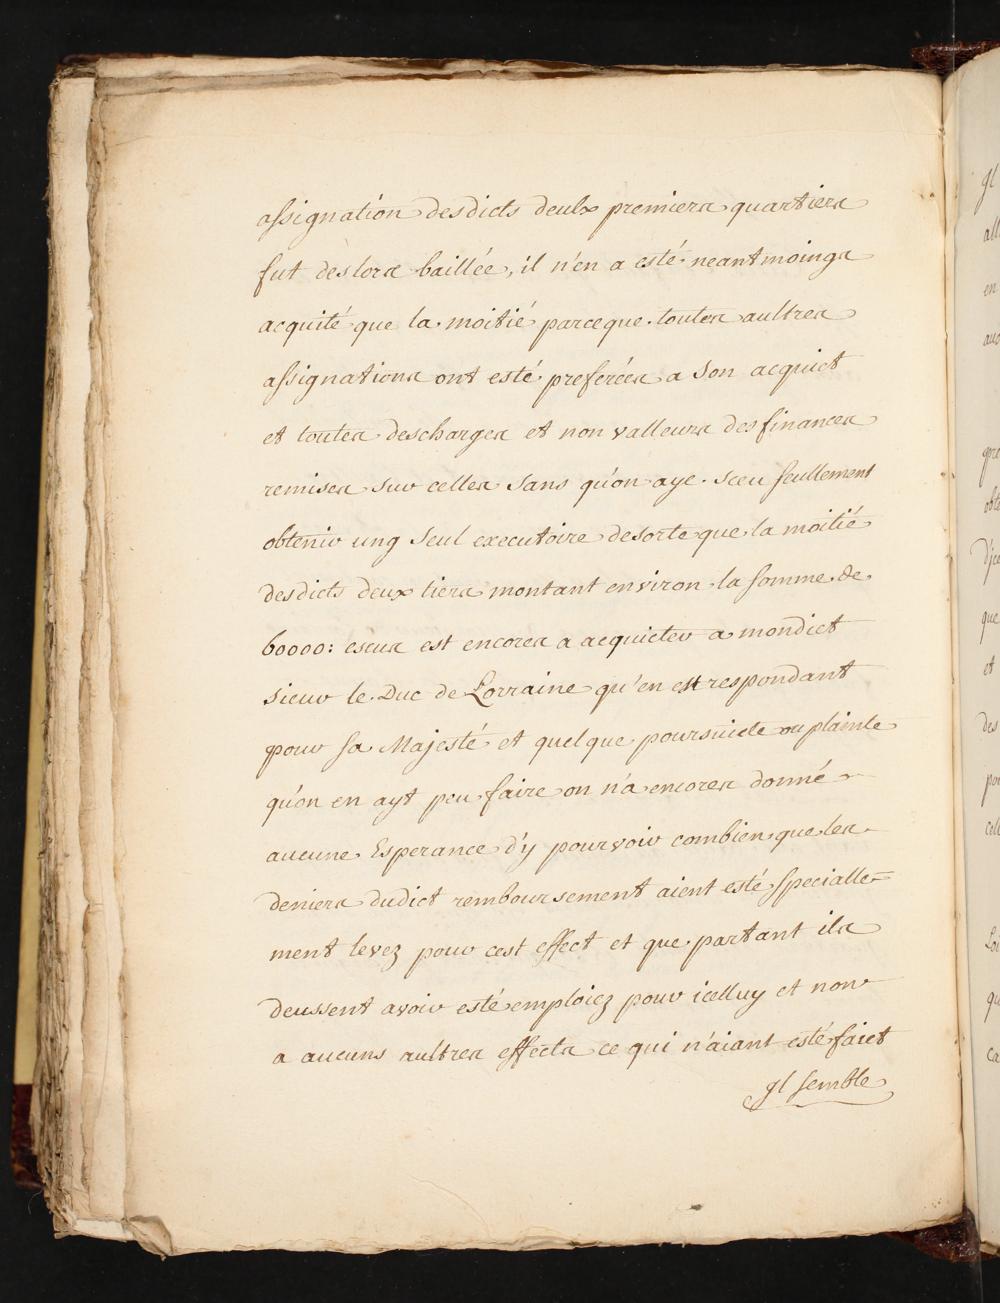 assignation desdicts deulx premiers quartiers
fut deslors baillée, il n'en a esté neantmoings
acquité que la moitié parceque toutes aultres
assignations ont esté preferées a son acquict
et toutes descharges et non valleurs des finances
remises sur celles sans qu'on aye sceu seullement
obtenir ung seul executoire desorte que la moitié
desdicts deux tiers montant environ la somme de
60000: escus est encores a acquicter a mondict
sieur le Duc de Lorraine qu'en est respondant
pour sa Majesté et quelque poursuicte ou plainte
qu'on en ayt peu faire on n'a encores donné
aucune Esperance d'y pourvoir combien que les
deniers dudict remboursement aient esté specialle-
ment levez pour cest effect et que partant ils
deussent avoir esté emploiez pour icelluy et non
a aucuns aultres effects ce qui n'aiant esté faict
Jl semble